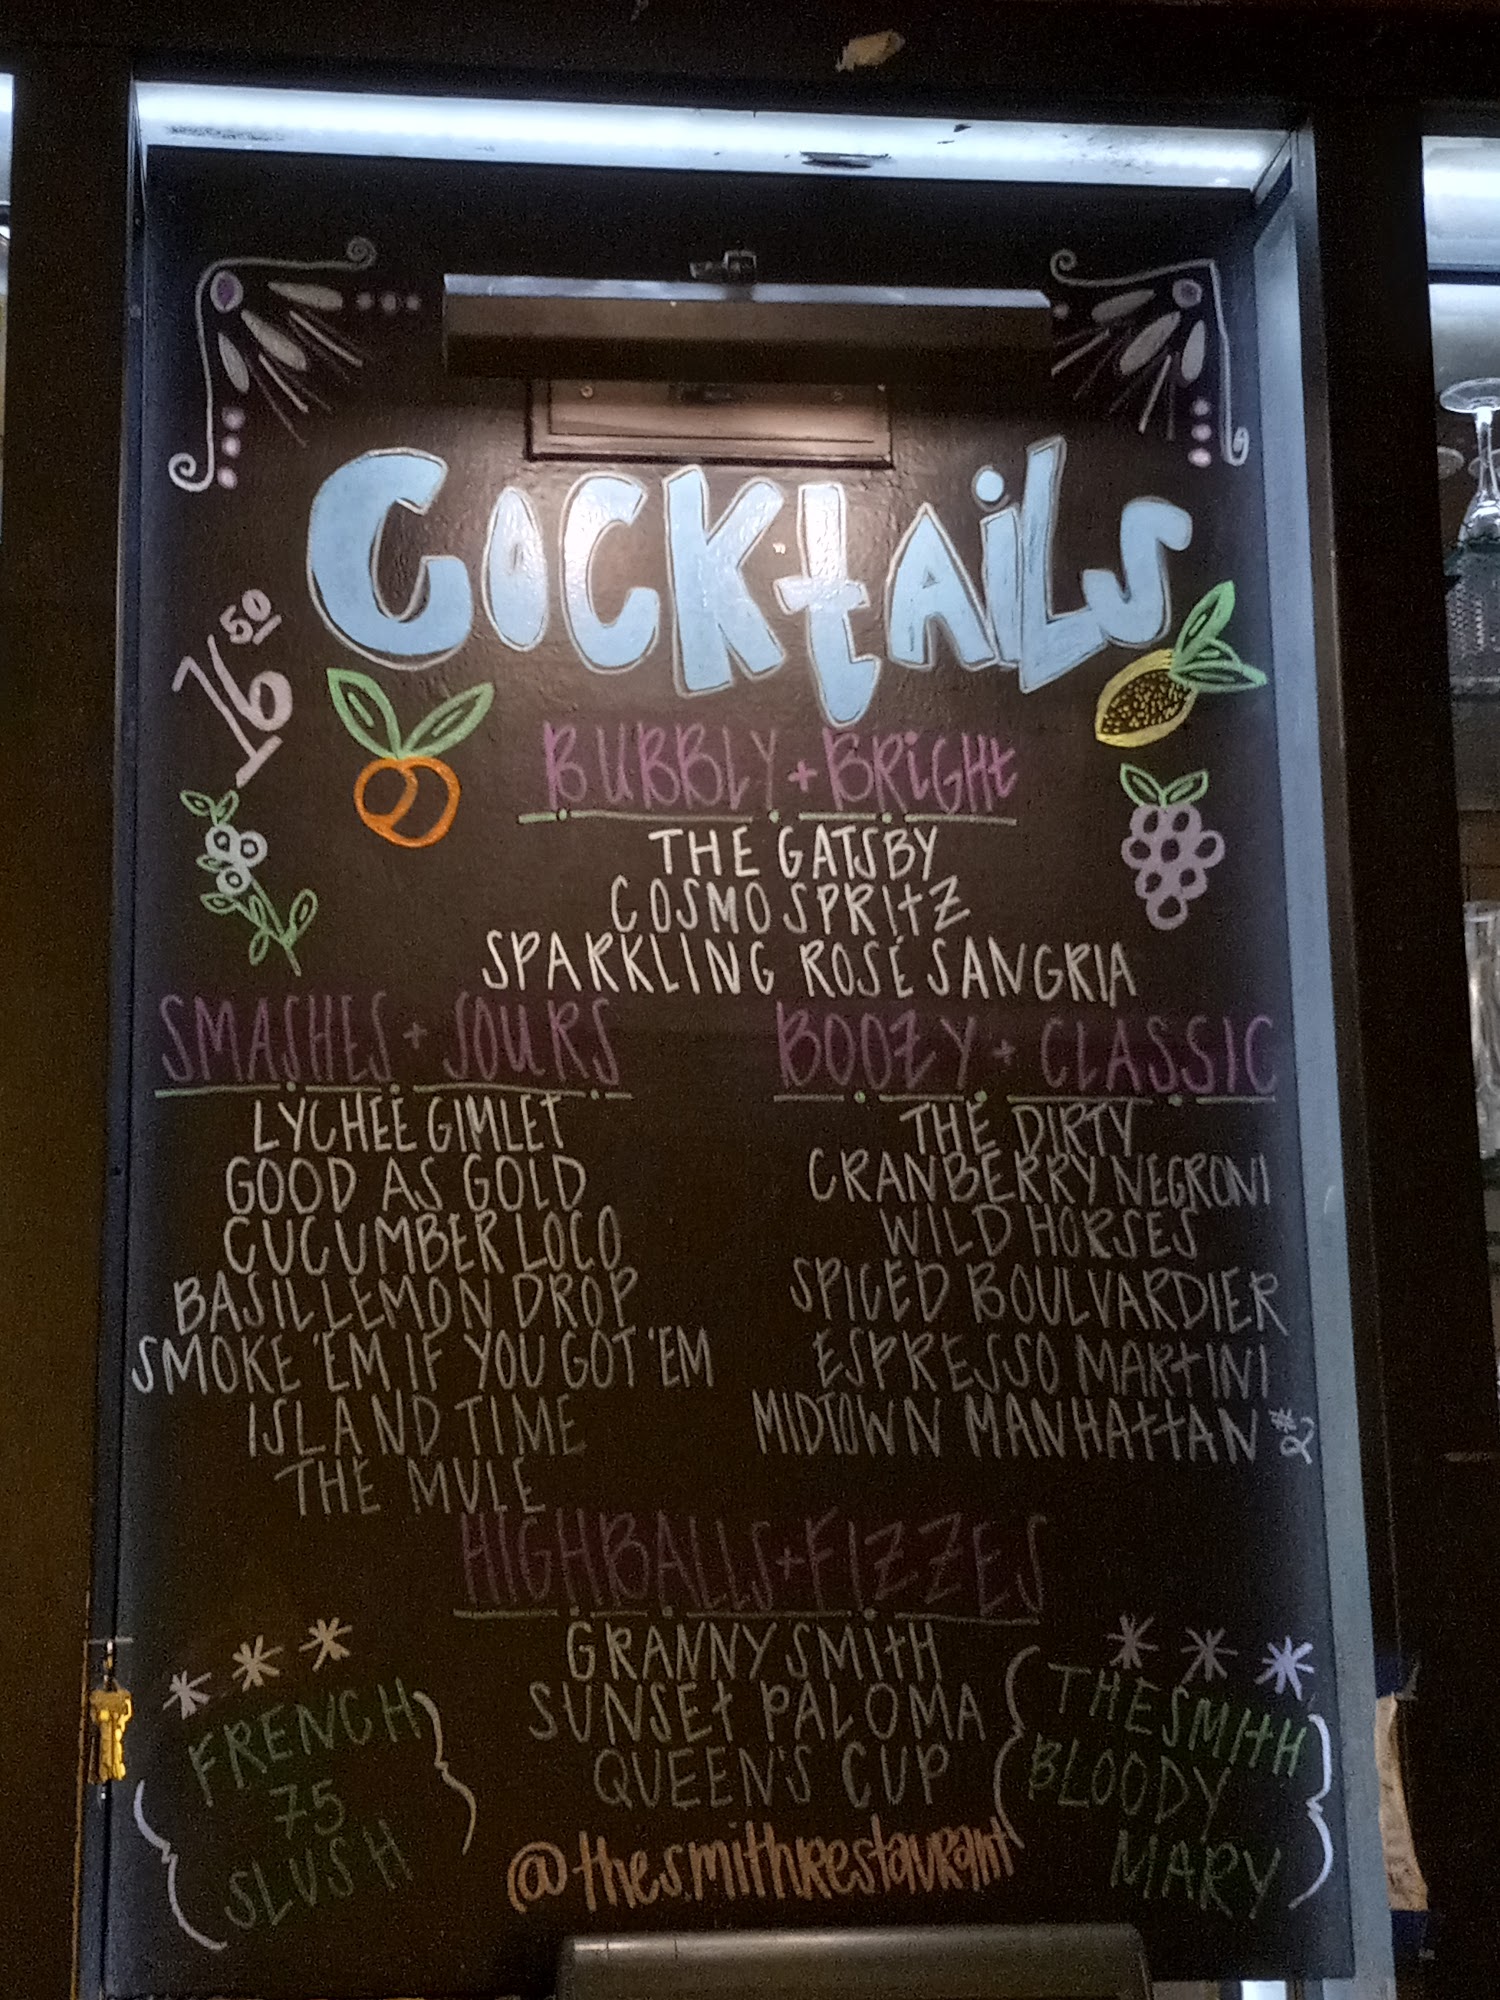 COCKTAILS
16 50
BUBBLY + BRIGHT
THE GATSBY
COSMO SPRITZ
SPARKLING ROSÉ SANGRIA
SMASHES + SOURS
LYCHEE GIMLET
GOOD AS GOLD
CUCUMBER LOCO
BASIL LEMON DROP
SMOKE 'EM IF YOU GOT 'EM
ISLAND TIME
THE MULE
BOOZY + CLASSIC
THE DIRTY
CRANBERRY NEGRONI
WILD HORSES
SPICED BOULVARDIER
ESPRESSO MARTINI
MIDTOWN MANHATTAN #2
HIGHBALLS + FIZZES
GRANNY SMITH
SUNSET PALOMA
QUEEN'S CUP
FRENCH
75
SLUSH
THE SMITH
BLOODY
MARY
@thesmithrestaurant